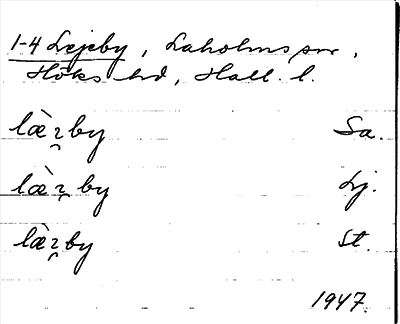 1-4 Lejeby, Laholms sn,
Höks hd, Hall. l.
læ̀ʒ̯by Sa.
læ̀ʒ̯by Lj.
læ̀ʒ̯by St.
1947.